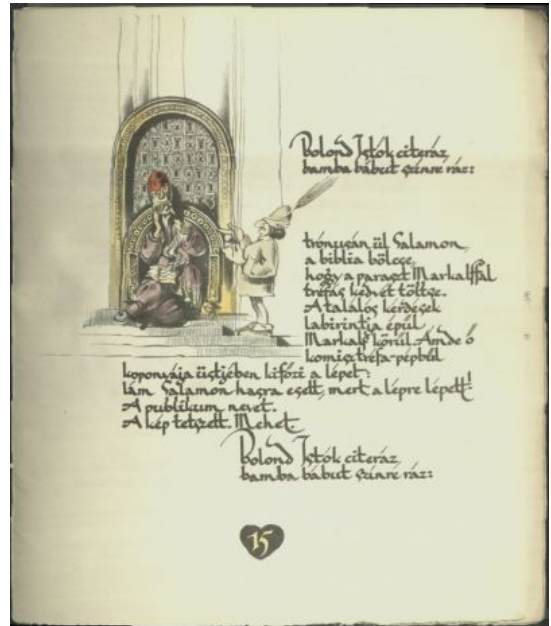 Bolond Istók citeráz,
bamba bábut színre ráz:
trónusán ül Salamon,
a biblia bölcse,
hogy a paraszt Markalffal
tréfás kedvét töltse.
A találós kérdések
labirintja épül
Markalf körül. Ámde ő
komisz tréfa-pépbűl
koponyája üstjében kifőzi a lépet:
lám Salamon hasra esett, mert a lépre lépett!
A publikum nevet.
A kép tetszett. Mehet.
Bolond Istók citeráz,
bamba bábut színre ráz:
15